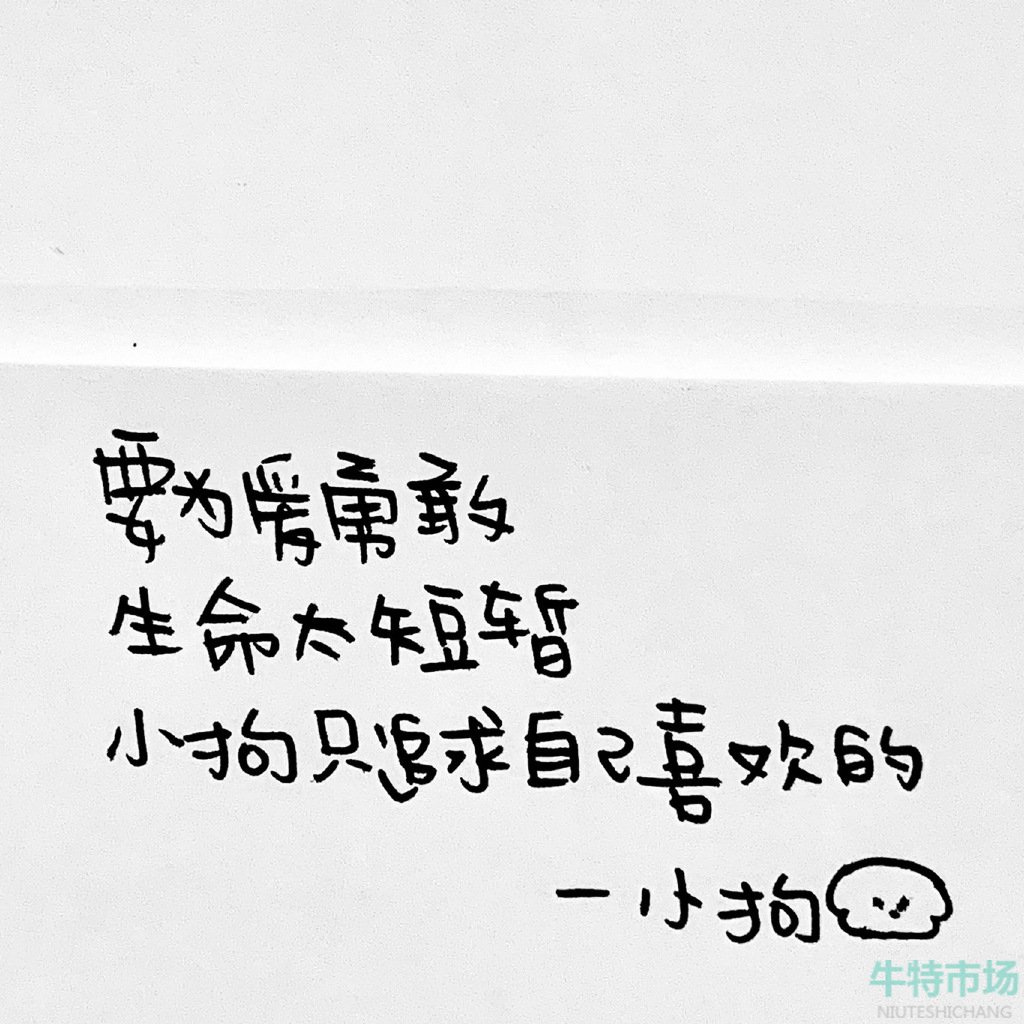 要为爱勇敢
生命太短暂
小狗只追求自己喜欢的
一小狗
牛特市场
NIUTESHICHANG